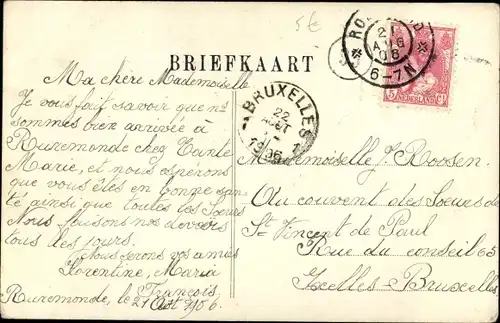 5€
BRIEFKAART
ROERMOND
21
AUG
06
6-7N
5 NEDERLAND Ct
BRUXELLES
22
AOUT
1906
1
Ma chère Mademoiselle
Je vous fait savoir que nous
sommes bien arrivée à
Ruremonde cheg Tante
Marie, et nous esperons
que vous êtes en bonne san-
té ainsi que toutes les Sœurs
Nous faisons nos devoirs
tous des jours.
Nous serons vos amis
Florentine, Maria
François
Ruremonde, le 21 Août 1906.
Mademoiselle J. Roosen.
Au couvent des Soeurs de
St Vincent de Paul
Rue du conseil 63
Ixelles-Bruxelles